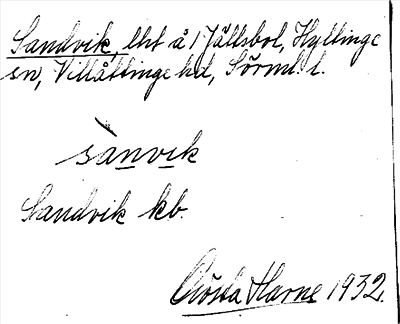 Sandvik, lht å 1 Jällsbol, Hyltinge
sn, Villåttinge hd, Sörml. l.
sànvik
Sandvik kb.
Gösta Harne 1932.